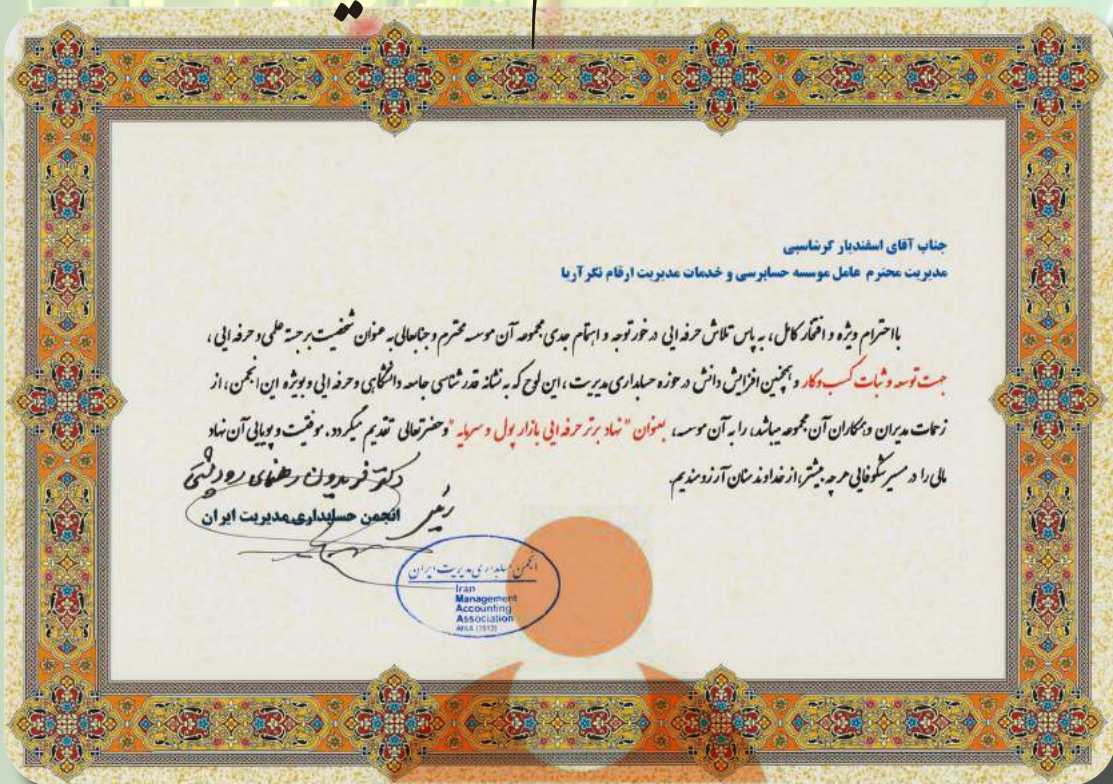 جناب آقای اسفندیار گرشاسبی
مدیریت محترم عامل موسسه حسابرسی و خدمات مدیریت ارقام نگر آریا
با احترام ویژه و افتخار کامل، به پاس تلاش حرفه ایی در خور توجه و اهتمام جدی مجموعه آن موسسه محترم و جنابعالی به عنوان شخصیت برجسته علمی و حرفه ایی،
جهت توسعه و ثبات کسب و کار و همچنین افزایش دانش در حوزه حسابداری مدیریت، این لوح که به نشانه قدرشناسی جامعه دانشگاهی و حرفه ایی و بویژه این انجمن، از
زحمات مدیران و همکاران آن مجموعه میباشد، را به آن موسسه، بعنوان "نهاد برتر حرفه ایی بازار پول و سرمایه" و حضرتعالی تقدیم میگردد. موفقیت و پویایی آن نهاد
مالی را در مسیر شکوفائی هر چه بیشتر، از خداوند منان آرزومندیم.
دکتر فریدون رهنمای رودپشتی
رئیس انجمن حسابداری مدیریت ایران
انجمن حسابداری مدیریت ایران
Iran
Management
Accounting
Association